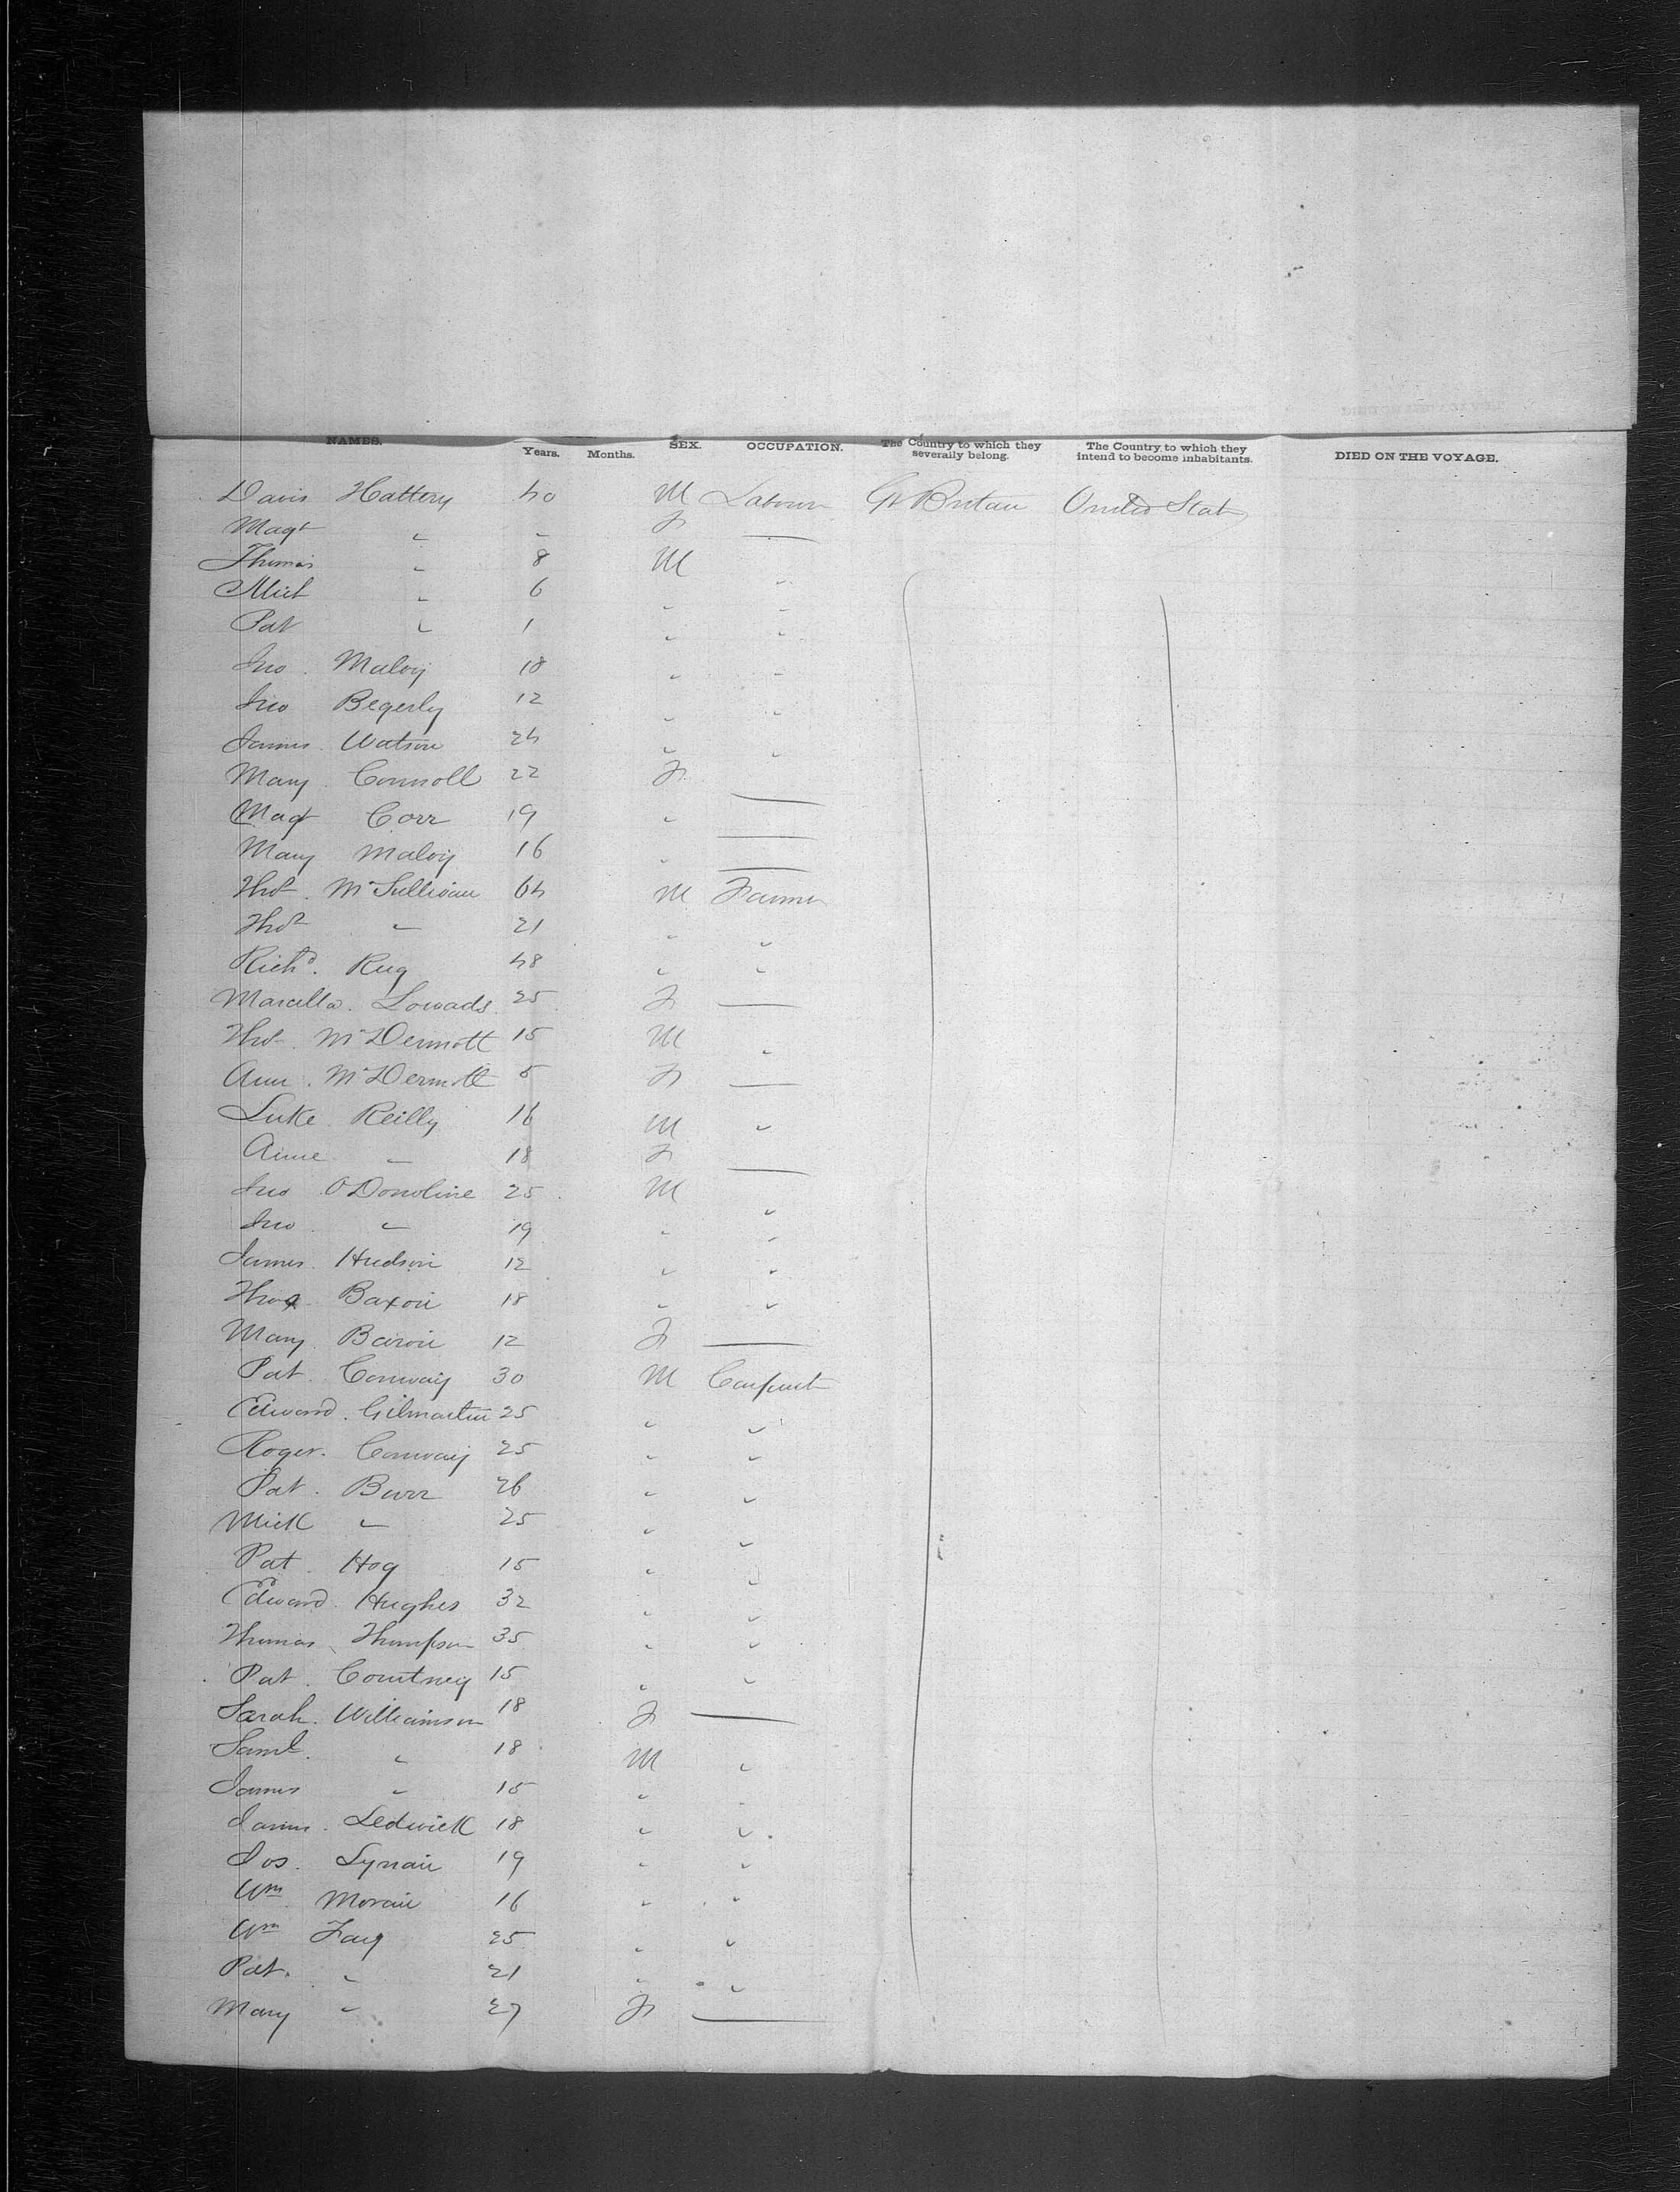 NAMES. Years. Months. SEX. OCCUPATION. The Country to which they severally belong. The Country to which they intend to become inhabitants. DIED ON THE VOYAGE.
Davis Hattery 40 M Labour Gt Britain United Stat
Magt " " F —
Thomas " 8 M "
Mich " 6 " "
Pat " 1 " "
Jno Maloy 18 " "
Jno Begerly 12 " "
James Watson 24 " "
Mary Connoll 22 F —
Magt Corr 19 " —
Mary Maloy 16 " —
Thos McSullivan 64 M Farmer
Thos " 21 " "
Richd. Rug 48 " "
Marcella Lowads 25 F —
Thos McDermott 15 M "
Ann McDermott 5 F —
Luke Reilly 16 M "
Anne " 18 F —
Jno O'Donoline 25 M "
Jno " 19 " "
James Hudson 12 " "
Thos Baxon 18 " "
Mary 12 F —
Pat Conway 30 M Carpent
Edward Gilmartin 25 " "
Roger Conway 25 " "
Pat Burr 26 " "
Mick " 25 " "
Pat Hog 15 " "
Edward Hughes 32 " "
Thomas Thompson 35 " "
Pat Courtney 15 " "
Sarah Williamson 18 F —
Saml " 18 M "
James " 15 "
James Ledwick 18 " "
Jos. Lynan 19 " "
Wm Moran 16 " "
Wm Fay 25 " "
Pat. " 21 " "
Mary " 27 F —